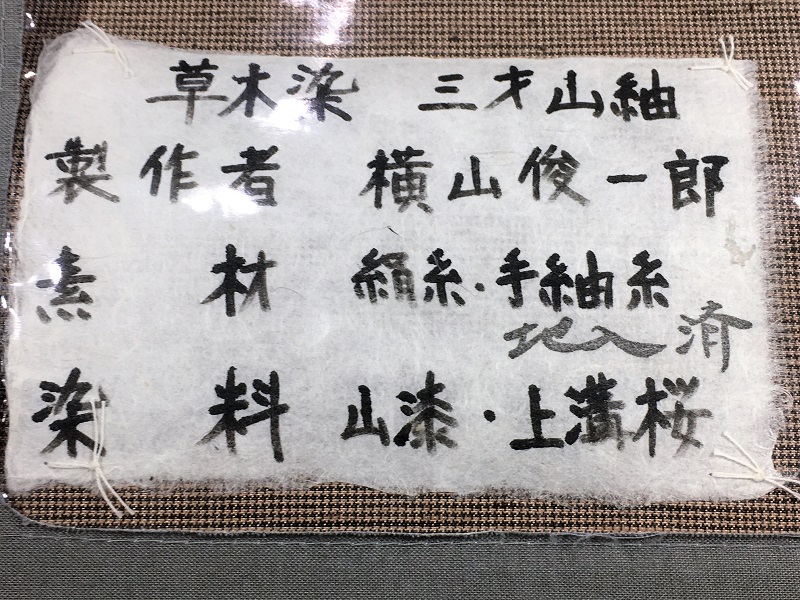 草木染 三才山紬
製作者 横山俊一郎
素材 絹糸・手紬糸
地入済
染料 山漆・上溝桜